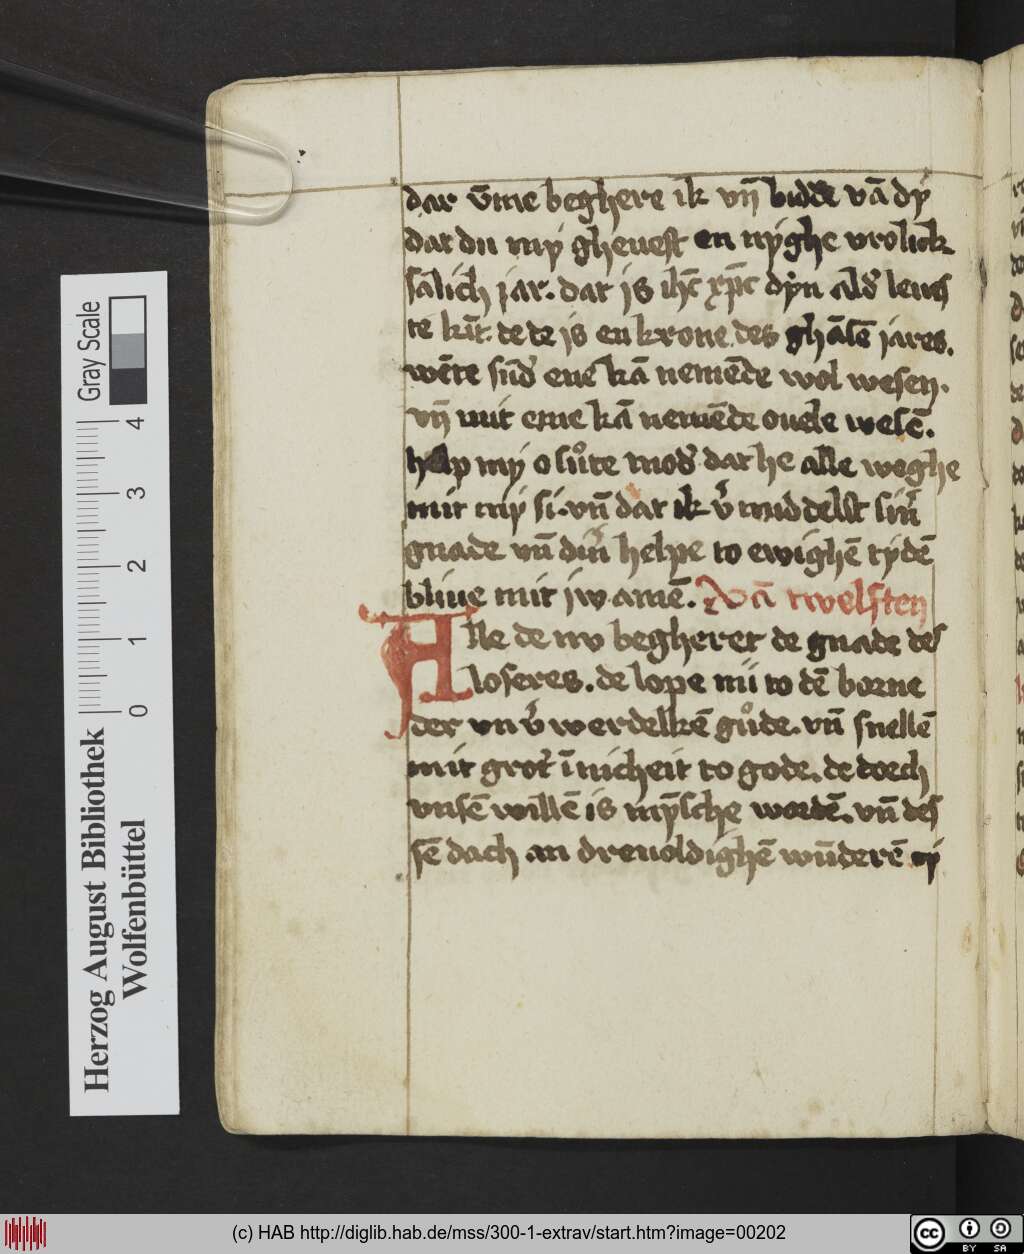 dar v̄me beghere ik vn̄ bidde vā dy
dat du my gheuest en nyghe vrolick
sālich jar. dat js ihc̄ xp̄c dyn ald' leues
te kīt. te te is en krone des ghāsē jares.
wēte sūd' ene kā nemēde wol wesen.
vn̄ mit eme kā nemēde ouele wesē.
help my o sůte mod' dat he alle weghe
mit my si. vn̄ dat ik v' middelst sin̄
gnade vn̄ din̄ helpe to ewighē tydē
bliue mit jw amē. Vā twelften
Alle de nv begheret de gnade des
loseres. de lope nu to dē borne
der vn v' werdelkē gůde. vn̄ snellē
mit grot' īnicheit to gode. de doech
vnsē willē is mȳsche wordē. vn̄ des
sē dach an dreuoldighē wūderē
Gray Scale
0 1 2 3 4
Herzog August Bibliothek
Wolfenbüttel
(c) HAB http://diglib.hab.de/mss/300-1-extrav/start.htm?image=00202
cc BY SA